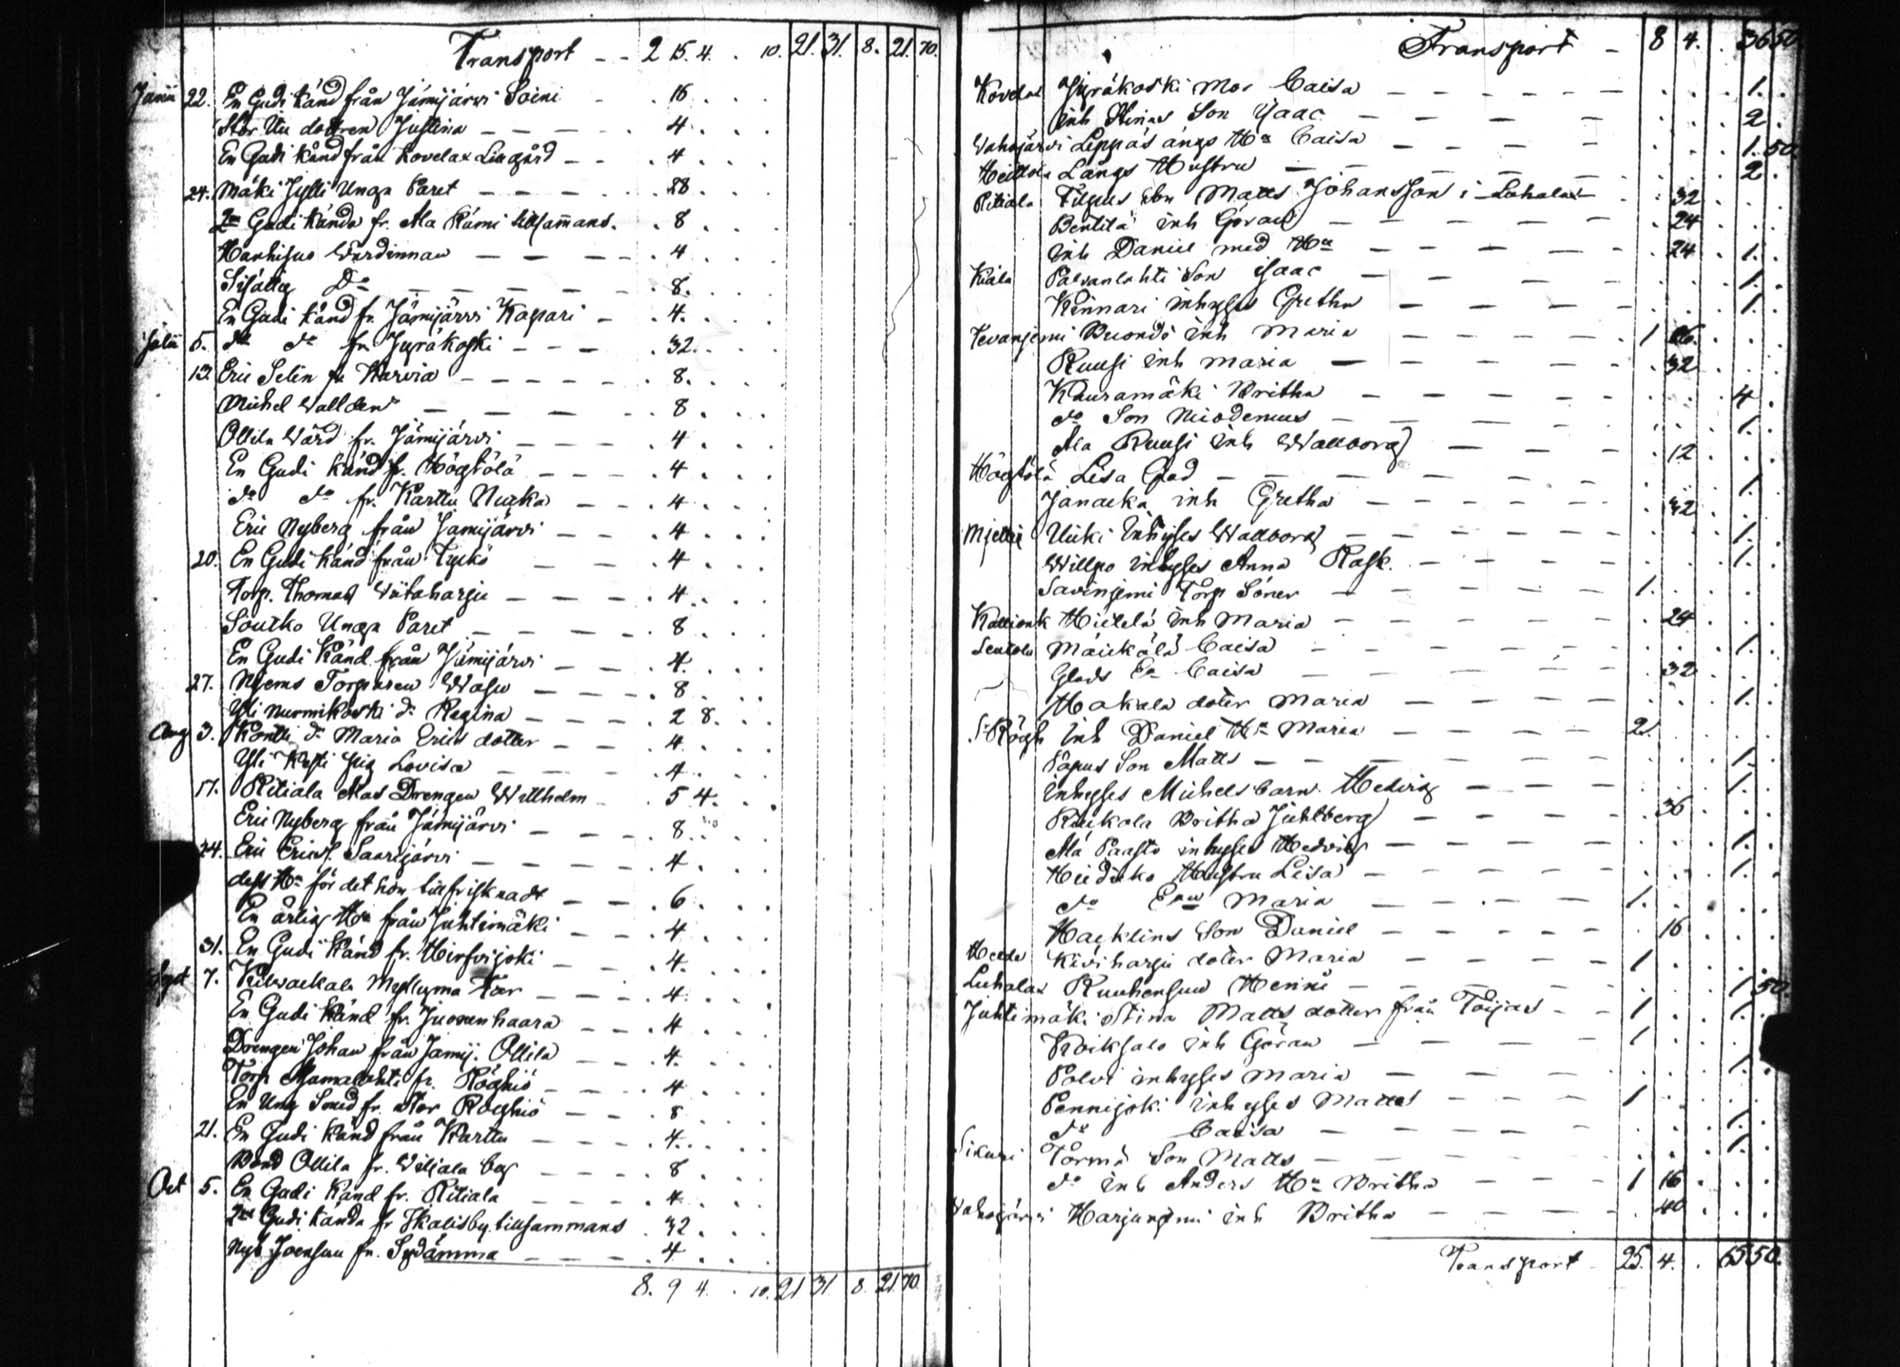 Transport - - 2 15 4. . 10. 21. 31. 8. 21. 70.
Junii 22. En Gudi känd från Jämijärvi Soini - . 16 . . .
Stor Uu dottren Justina - - - - . 4 . . .
En Gudi känd från Kovelax Lingård - - . 4 . . .
24. Mäki Jylli Unga Paret - - - - - . 28 . . .
2ne Gudi kända fr. Ala Kärni tillsammans. . 8 . . .
Hanhijus Värdinnan - - - - . 4 . . .
Sifälly Do - - - - - - . 8. . . .
En Gudi känd fr. Jämijärvi Kapari - . 4. . . .
Julii 5. do do fr. Jyräkoski - - - . 32. . . .
13. Eric Selin fr. Karvia - - - - - - . 8. . . .
Michel Wallden - - - - . 8 . . .
Ollila Värd fr. Jämijärvi - - - - . 4 . . .
En Gudi känd fr. Högfölä - - - . 4 . . .
do do fr. Karttu Nucka - - - . 4 . . .
Eric Nyberg från Jamijärvi - - - . 4 . . .
20. En Gudi känd från Tyckö - - - . 4 . . .
Torp. Thomas Viitaharju - - - - . 4 . . .
Soutko Unga Paret - - - - . 8 . . .
En Gudi Känd från Jämijärvi - - - . 4. . . .
27. Torparen - - - - . 8 . . .
Yli Nurmikoski do Regina - - - - . 2 8. . .
Aug 3. Kontti do Maria Erics dotter - - - . 4. . . .
Yli Kesti Pig Lovisa - - - - . 4. . . .
17. Ritiala Mas Drengen Willhelm - . 5 4. . .
Eric Nyberg från Jämijärvi - - - . 8. . . .
24. Eric Ericss. Saarijärvi - - - - - . 4 . . .
dess Hu för det hon tillfrisknadt - - - . 6. . . .
En ärlig Hu från Juhtimäki - - - . 4 . . .
31. En Gudi Känd fr. Hirfvijoki - - - . 4. . . .
Sept 7. Myllyma Far - - - - . 4. . . .
En Gudi känd fr. Juonenhaara - - - . 4 . . .
Drengen Johan från Jamij. Ollila - - - . 4. . . .
Torp. fr. Röghiö - - - - . 4 . . .
En Ung Smed fr. Stor Röghiö - - - . 8 . . .
21. En Gudi känd från Karttu - - - - . 4. . . .
Bond Ollila fr. Viljala by - - - . 8 . . .
Oct 5. En Gudi Känd fr. Ritiala - - - - . 4 . . .
2ne Gudi kända fr Skalisby tillsammans . 32 . . .
Nyb Joensuu fr. Sydänma - - - . 4 . . .
8. 9 4. . 10. 21 31 8. 21 70.
Transport - 8 4. . 36 50
Kovelax Jyräkoski Mor Caisa - - - - - - . . . 1. .
inh Stinas Son Isaac - - - - - . . . 2 .
Vahojärvi Leppäs ängs Hu Caisa - - - - . . . 1. 50
Heittois Långs Hustru - - - - - . . . 2. .
Ritiala Filpus Son Matts Johansson i Luhalax - . 32 . . .
Benttilä inh Göran - - - - - . 24 . . .
inh Daniel med Hu - - - - - . 24 . 1. .
Kiala Palvanlahti Son Isaac - - - - . . . 1. .
Kinnari inhyses Gretha - - - - . . . 1. .
Levanjemi Ruondo inh Maria - - - - - . 1 16. . . .
Ruusi inh Maria - - - - - . 32 . . .
Kauramäki Britha - - - - - . . . 4 .
do Son Nicodemus - - - - - . . . 1. .
Ala Ruusi inh Wallborg - - - - . 12 . . .
Högfölä Lisa Glad - - - - - - . . . 1 .
Janacka inh Gretha - - - - - . 32 . . .
Mjettie Uuki Inhyses Wallborg - - - - - . . . 1. .
Willpo inhyses Anna Rask. - - - - . . . 1. .
Savinjemi Torp Söner - - - - 1. . . . .
Kallionk Hietelä inh Maria - - - - - . 24 . . .
Sentola Mäickälä Caisa - - - - - . . . 1 .
Glads En Caisa - - - - - . 32 . . .
Hakala doter Maria - - - - - . . . 1. .
S. Rögh inh Daniel Hu Maria - - - - - 2. . . . .
Papus Son Matts - - - - - - . . . 1. .
inhyses Michels barn Hedvig - - - - . . . 1. .
Raukala Britha Juhlberg - - - - . 36 . . .
Ala Paasto inhyses Hedvig - - - - . . . 1. .
Heidicko Hustru Lisa - - - - - . . . 1. .
do Enn Maria - - - - - 1. . . . .
Hacklins Son Daniel - - - - - . 16 . . .
Kiviharju doter Maria - - - - - 1 . . . .
Luhalax Ruuhensuu Henric - - - - . . . 1 50.
Juhtimäki Stina Matts dotter från Töijas - - 1 . . . .
Koiksalo inh Göran - - - - - 1 . . . .
Polvi inhyses Maria - - - - . . . 1 .
Pennijoki inhyses Matts - - - - 1 . . . .
do Caisa - - - - - . . . 1. .
Sikuri Törmä Son Matts - - - - - . . . 1. .
do inh Anders Hu Britha - - - - 1 16 . . .
Vahojärvi Harjunjemi inh Britha - - - - . 40 . . .
Transport - 25. 4. . 65 50.